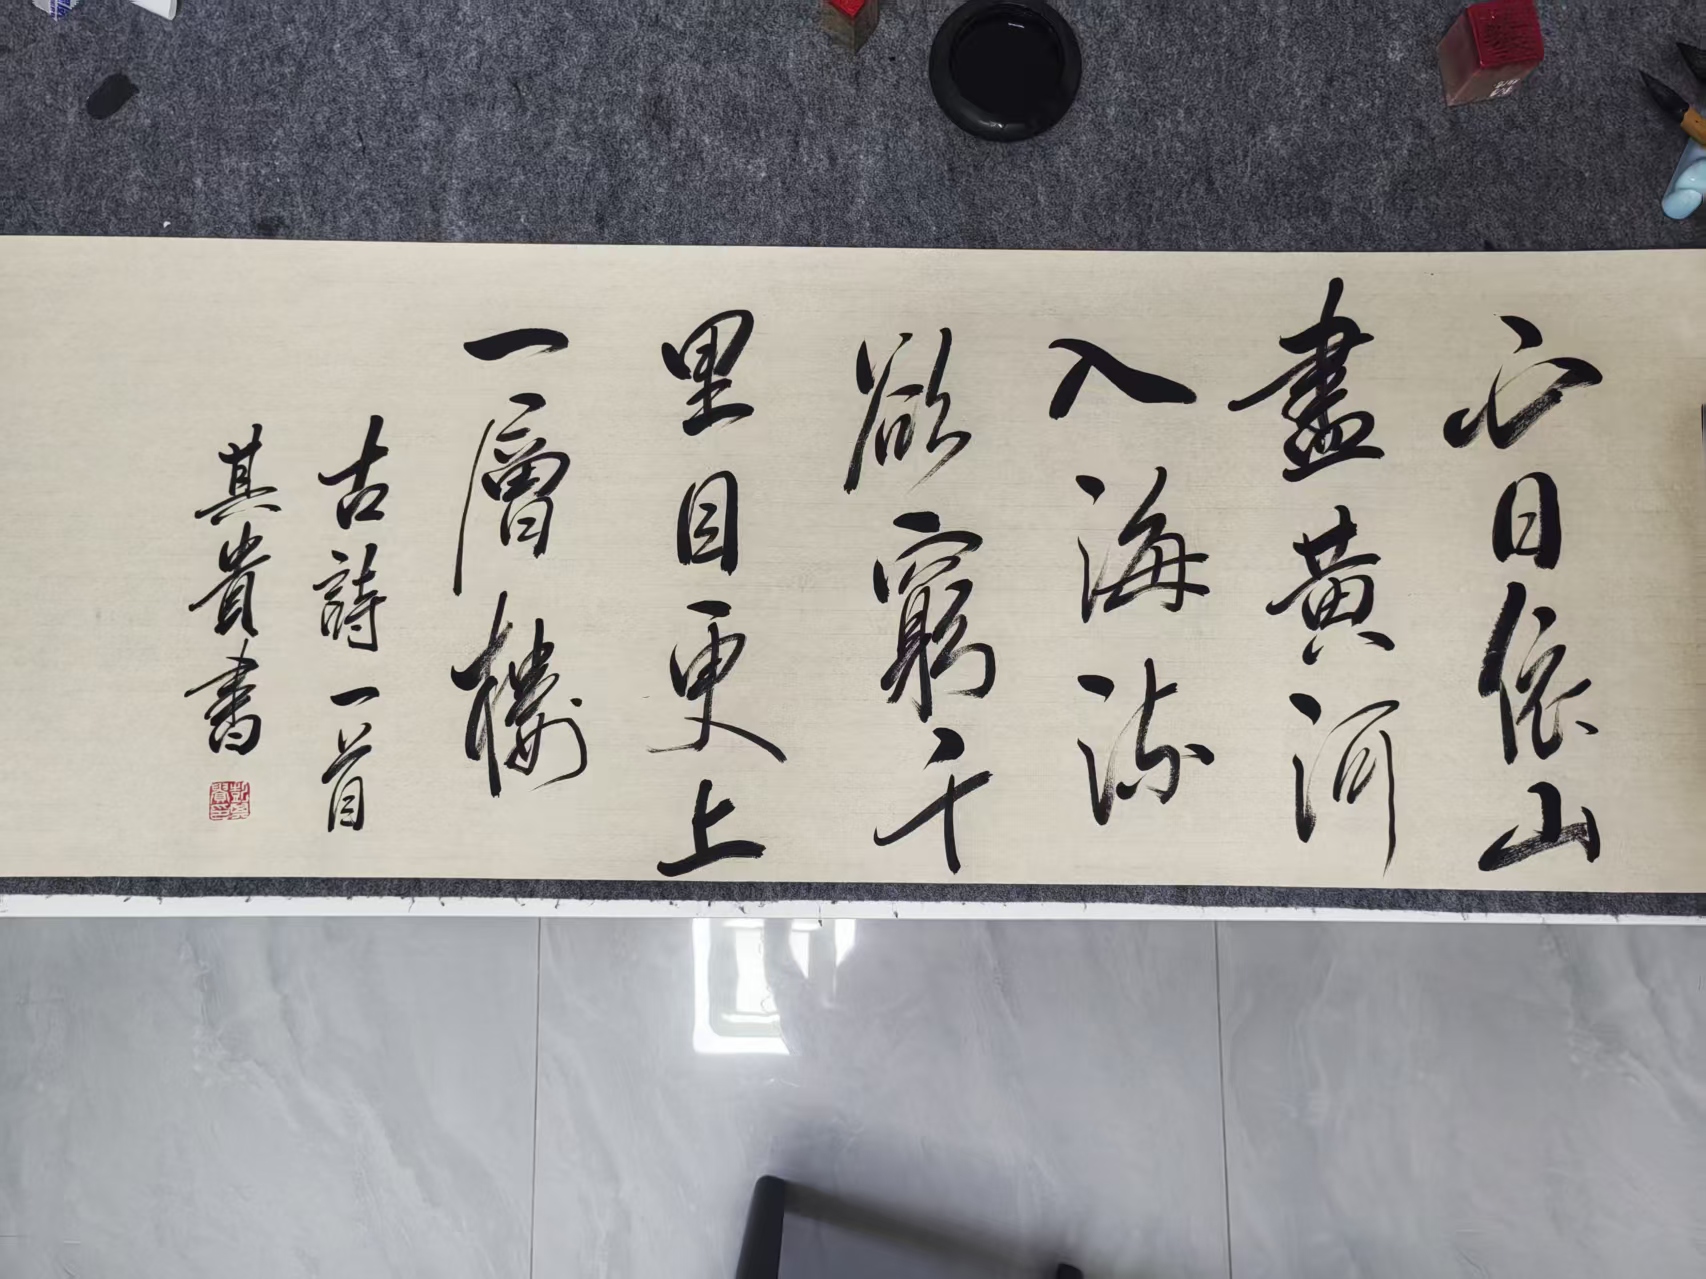 白日依山
盡黃河
入海流
欲窮千
里目更上
一層樓
古詩一首
其貴書